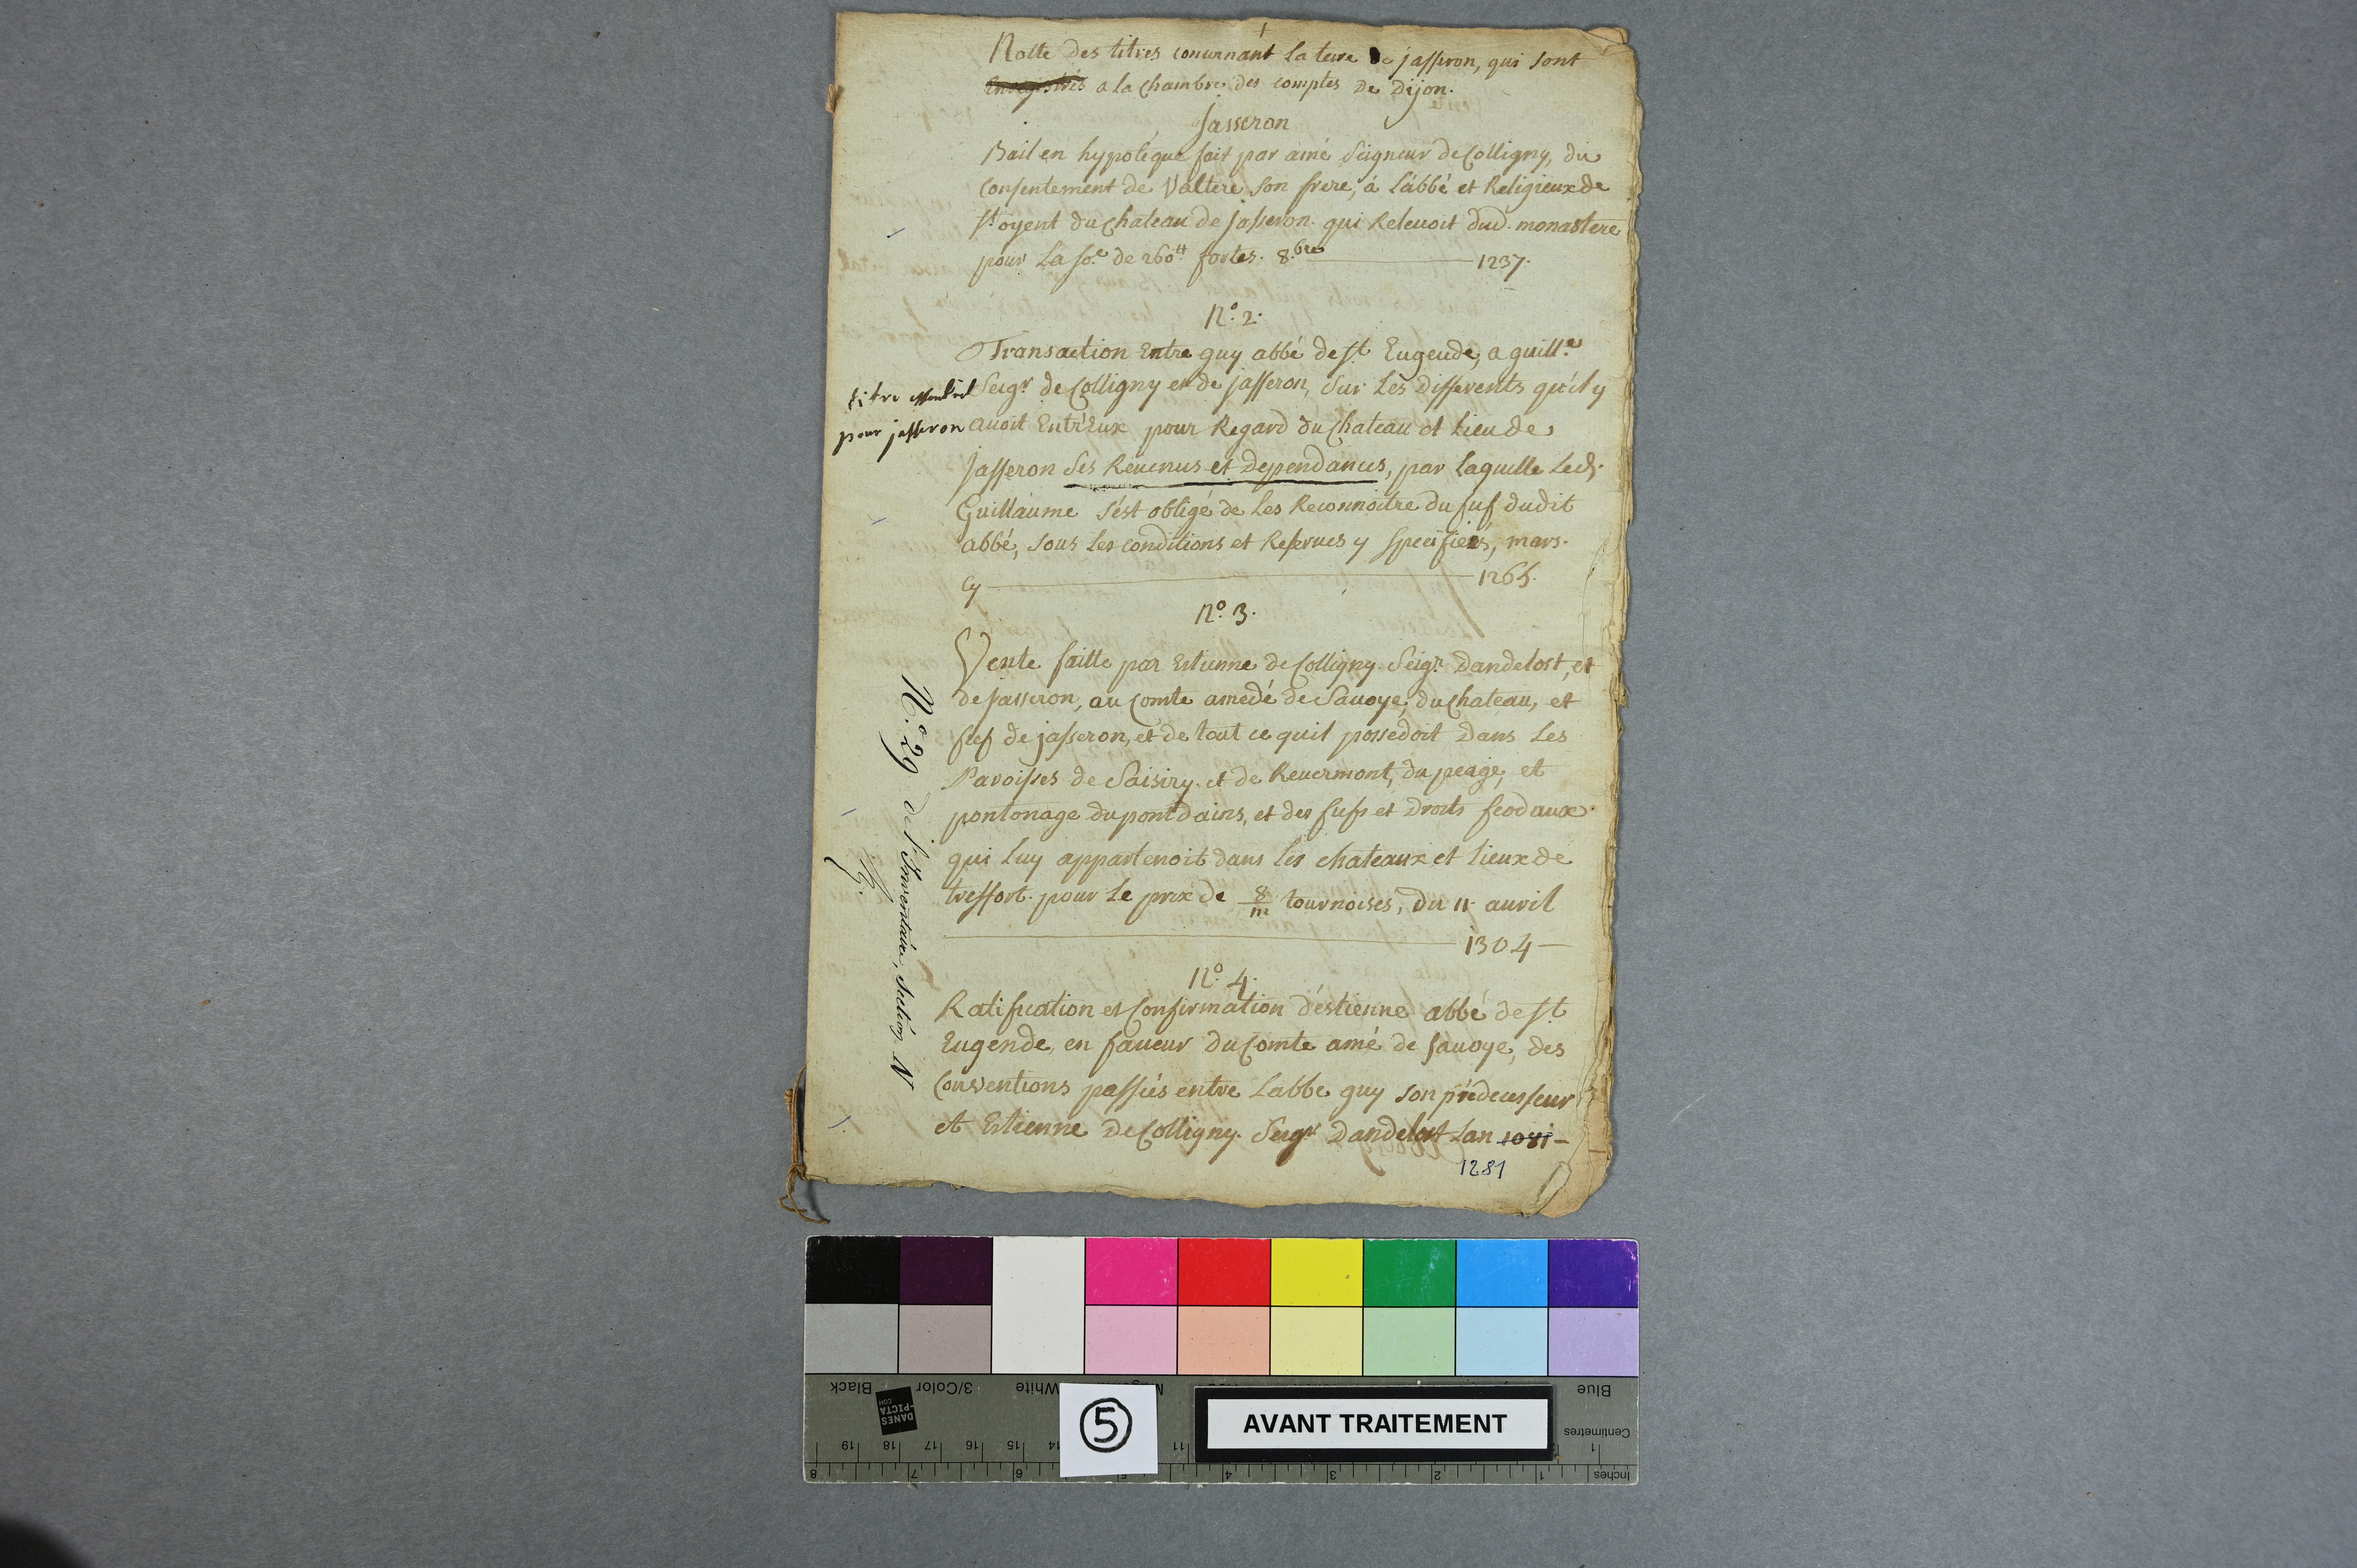 Notte des titres concernant la terre de jasseron, qui sont
Enregistrés a la Chambre des comptes De Dijon.
Jasseron
Bail en hypotéque fait par amé Seigneur de Colligny, du
Consentement de Valtere son frere, á L'abbé et Religieux de
St. oyent du Chateau de Jasseron. qui Relevoit dud. monastere
pour La so.e de 260tt fortes. 8.bre 1237.
N.o 2.
Transaction Entre guy abbé de st Eugende, a guill.e
Seigr. de Colligny et de jasseron, sur Les Differents qu'il y
titre essentiel
pour jasseron
avoit Entr'Eux pour Regard du Chateau et Lieu de
Jasseron Ses Revenus et Dependances, par Laquelle Led.
Guillaume s'est obligé de Les Reconnoitre du fief dudit
abbé, sous Les conditions et Reserves y specifiées, mars.
Cy 1265.
N.o 3.
Vente faitte par Estienne de Colligny. Seigr. Dandelost, et
de Jasseron, au Comte amedé de Savoye, du Chateau, et
fief de jasseron, et de tout ce quil possedoit Dans Les
Paroisses de Saisiry. et de Revermont, du peage, et
pontonage du pont dains, et des fiefs et Droits feodaux.
qui Luy appartenoit dans les chateaux et Lieux de
treffort. pour Le prix de 8/m tournoises, Du 11. avril
1304
N.o 4.
Ratification et Confirmation d'estienne abbé de st
Eugende, en faveur Du Comte amé de Savoye, des
Conventions passées entre Labbe guy son prédecesseur
et Estienne De Colligny. Seigr Dandelost Lan 1081
1281
N.o 29 de l'Inventaire, section N
AVANT TRAITEMENT
5
Black
3/Color
White
Blue
Centimetres
Inches
DANES
-PICTA
.COM
19 18 17 16 15 14 11 1
8 7 6 5 4 3 2 1